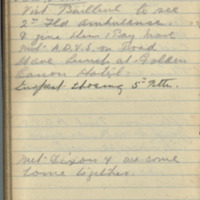 Visit Bailleul to see
2nd Fld Ambulance.
& give them 1 Day more
Met A.D.V.S. on Road
Have lunch at Golden
Hotel.
Inspect Shoeing 5th
Met Dixon & we come
home together.